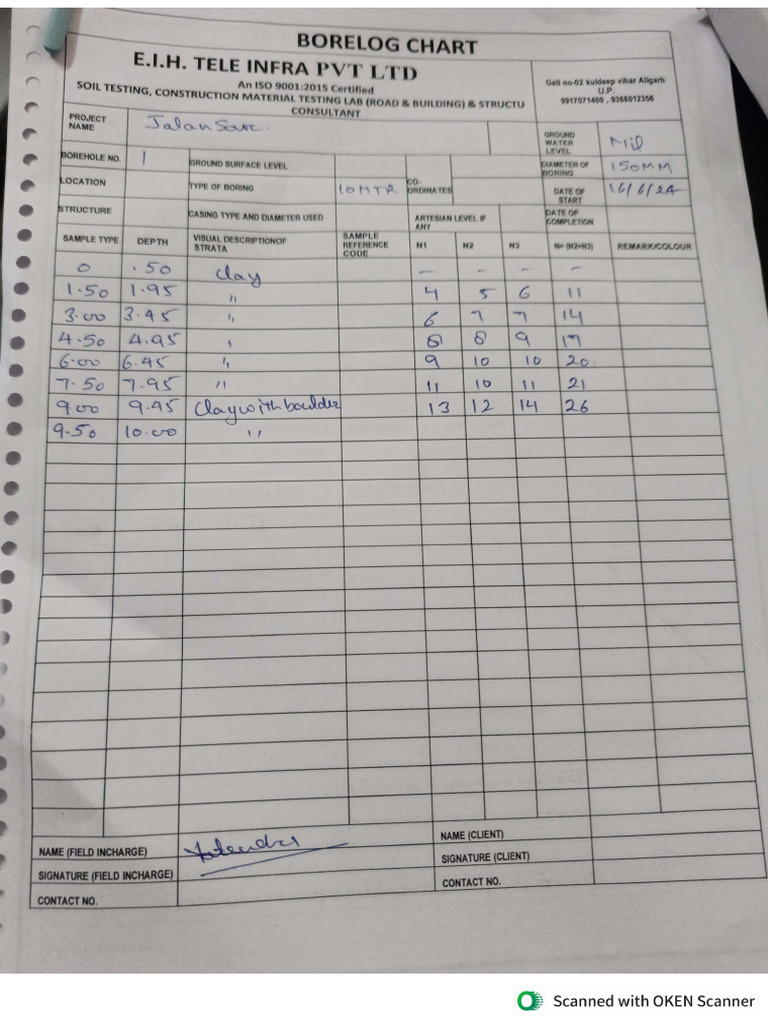 BORELOG CHART
E.I.H. TELE INFRA PVT LTD
An ISO 9001:2015 Certified
SOIL TESTING, CONSTRUCTION MATERIAL TESTING LAB (ROAD & BUILDING) & STRUCTU
CONSULTANT
Gali no-02 kuldeep vihar Aligarh
U.P.
9917071400 , 9368012356
PROJECT NAME Jalan Sarc.
GROUND WATER LEVEL Nil
BOREHOLE NO. 1 GROUND SURFACE LEVEL DIAMETER OF BORING 150MM
LOCATION TYPE OF BORING 10MTR CO-ORDINATES DATE OF START 16/6/24
STRUCTURE CASING TYPE AND DIAMETER USED ARTESIAN LEVEL IF ANY DATE OF COMPLETION
SAMPLE TYPE DEPTH VISUAL DESCRIPTIONOF STRATA SAMPLE REFERENCE CODE N1 N2 N3 N= (N2+N3) REMARK/COLOUR
0 .50 clay – – – –
1.50 1.95 " 4 5 6 11
3.00 3.45 " 6 7 7 14
4.50 4.95 " 8 8 9 17
6.00 6.45 " 9 10 10 20
7.50 7.95 " 11 10 11 21
9.00 9.45 Clay with boulder 13 12 14 26
9.50 10.00 "
NAME (FIELD INCHARGE)
SIGNATURE (FIELD INCHARGE)
CONTACT NO.
NAME (CLIENT)
SIGNATURE (CLIENT)
CONTACT NO.
Scanned with OKEN Scanner